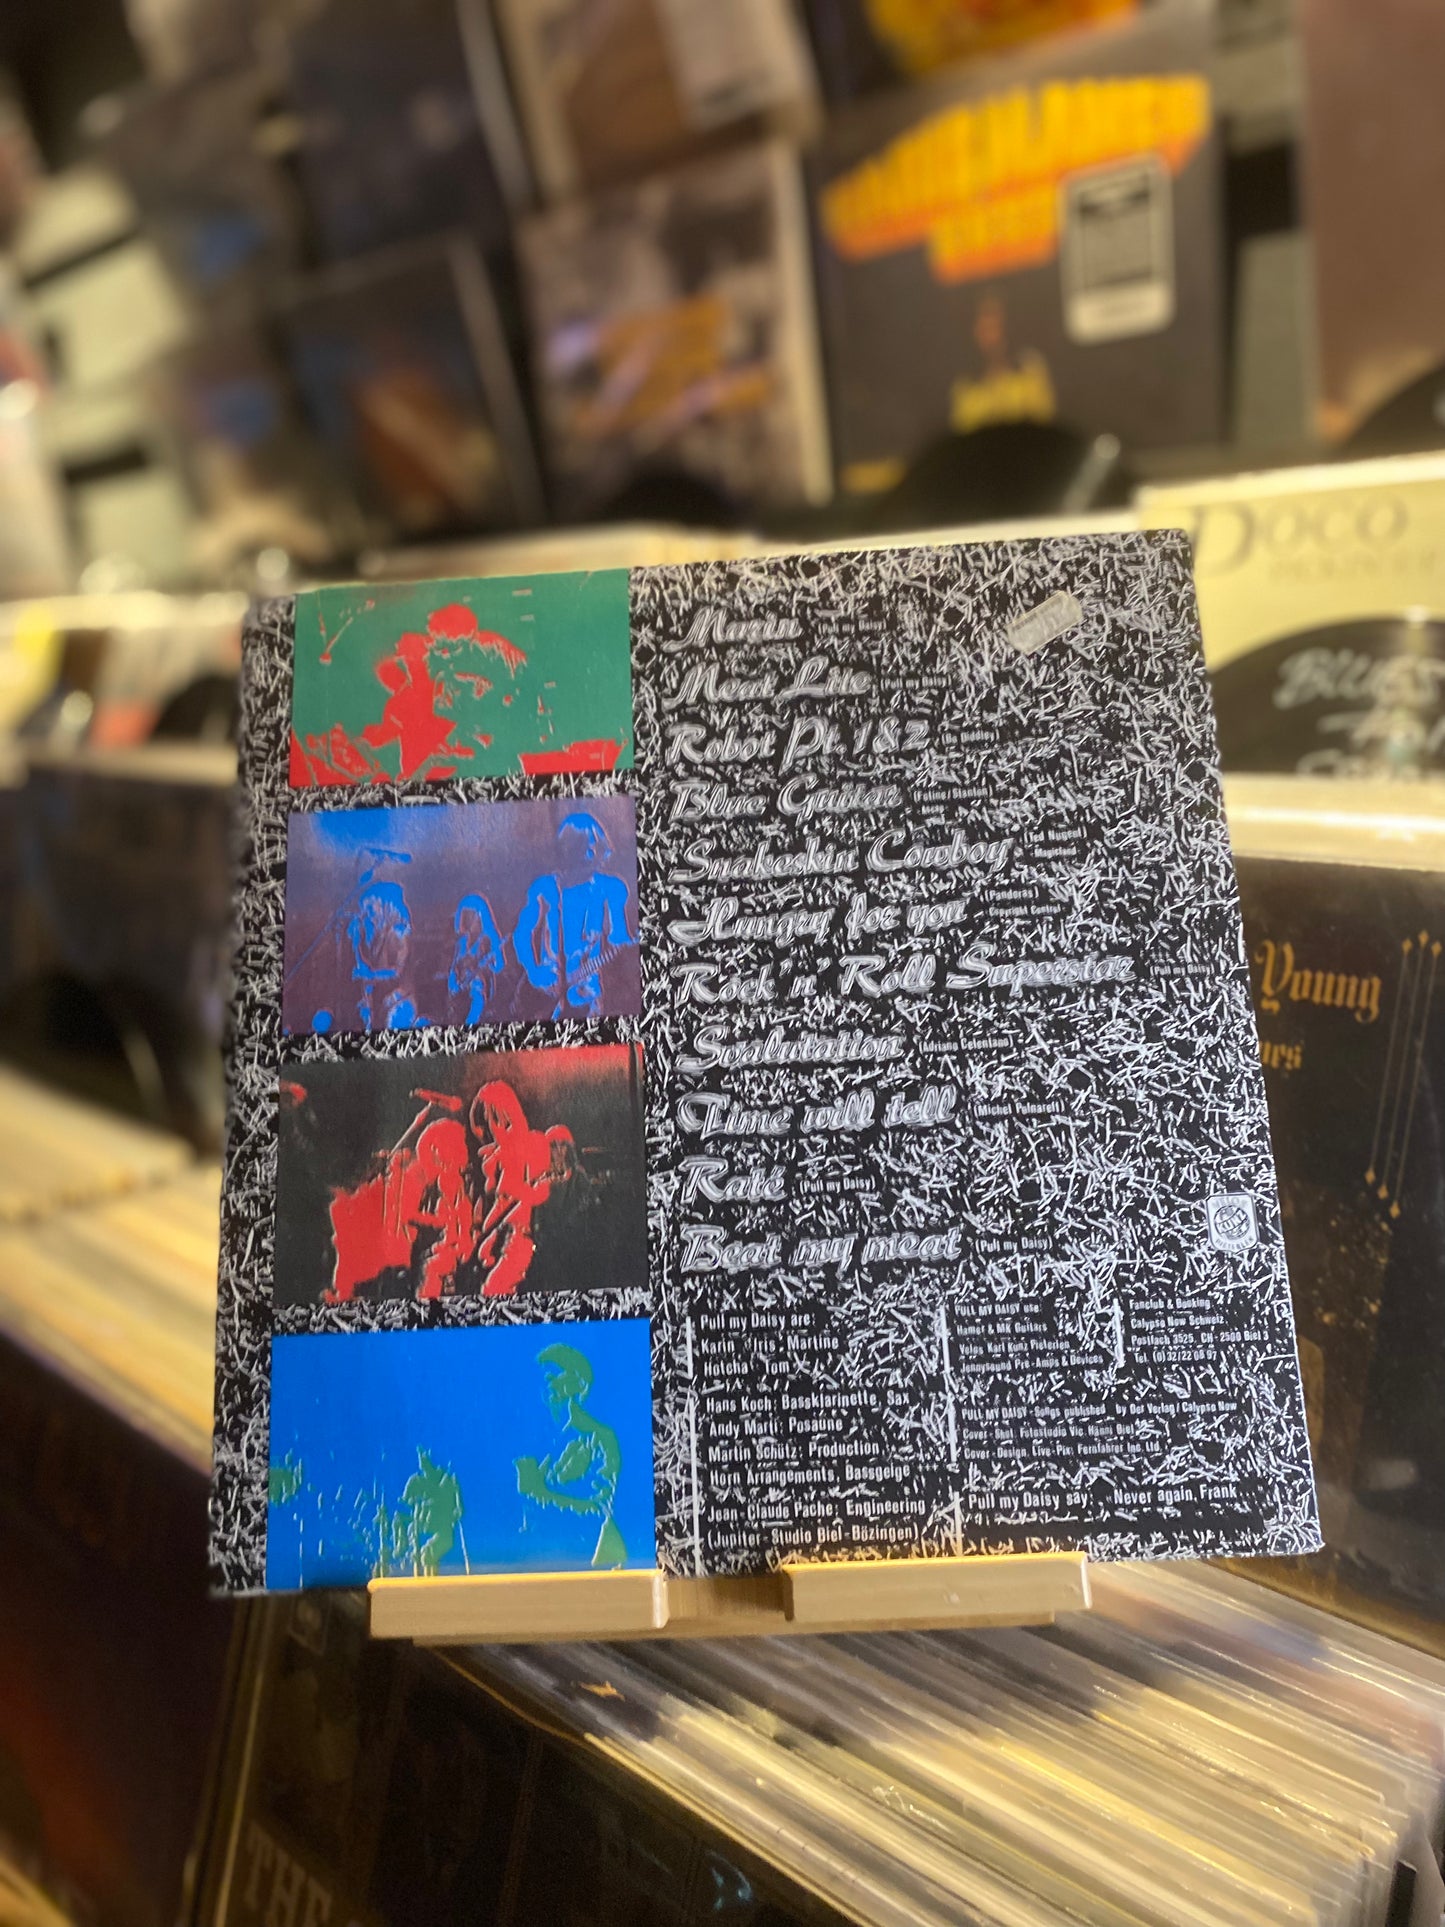 Maria
Meat Lite (Pull my Daisy)
Robot Pt. 1 & 2
Blue Guitar
Snakeskin Cowboy (Ted Nugent)
Hungry for you (Pandoras)
Copyright Control
Rock 'n' Roll Superstar (Pull my Daisy)
Svalutation (Adriano Celentano)
Time will tell (Michel Polnareff)
Raté (Pull my Daisy)
Beat my meat (Pull my Daisy)
Pull my Daisy are:
Karin Iris Martine
Hotcha Tom
Hans Koch: Bassklarinette, Sax
Andy Marti: Posaune
Martin Schütz: Production
Horn Arrangements, Bassgeige
Jean-Claude Pache: Engineering
(Jupiter Studio Biel-Bözingen)
PULL MY DAISY use
Hamer & MK Guitars
Velos Karl Kunz Pieterlen
Jennysound Pre-Amps & Devices
Fanclub & Booking
Calypso Now Schweiz
Postfach 3525, CH-2500 Biel 3
Tel. (0)32/22 08 97
PULL MY DAISY Songs published by Der Verlag/Calypso Now
Cover-Shot: Fotostudio Vic. Hänni Biel
Cover-Design, Live-Pix: Fernfahrer Inc. Ltd.
Pull my Daisy say: Never again, Frank
POCO
BLUES
Young
THE